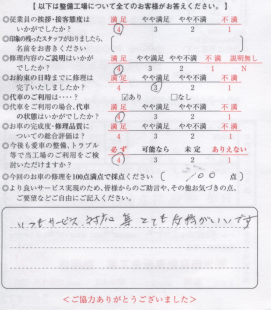 【 以下は整備工場について全てのお客様がお答えください。】
◎従業員の挨拶・接客態度は 満 足 やや満足 やや不満 不 満
いかがでしたか? 4 3 2 1
◎印象の残ったスタッフがおりましたら、
名前をお書きください
◎修理内容のご説明はいかが 満足 やや満足 やや不満 不満 説明無し
でしたか? 4 3 2 1 N
◎お約束の日時までに修理は 満 足 やや満足 やや不満 不 満
完了いたしましたか? 4 3 2 1
◎代車のご利用は・・・? ☑あり □なし
◎代車をご利用の場合、代車 満 足 やや満足 やや不満 不 満
の状態はいかがでしたか? 4 3 2 1
◎お車の完成度・修理品質に 満 足 やや満足 やや不満 不 満
ついての総合評価は? 4 3 2 1
◎今後も愛車の整備、トラブル 必 ず 可能なら 未 定 ありえない
等で当工場のご利用をご検 4 3 2 1
討いただけますか?
◎今回のお車の修理を100点満点で採点ください ( 100 点)
◎より良いサービス実現のため、皆様からのご助言や、その他お気づきの点、
ご要望などご自由にご記入ください。
いつもサービス、対応等とても気持がいいです
<ご協力ありがとうございました>